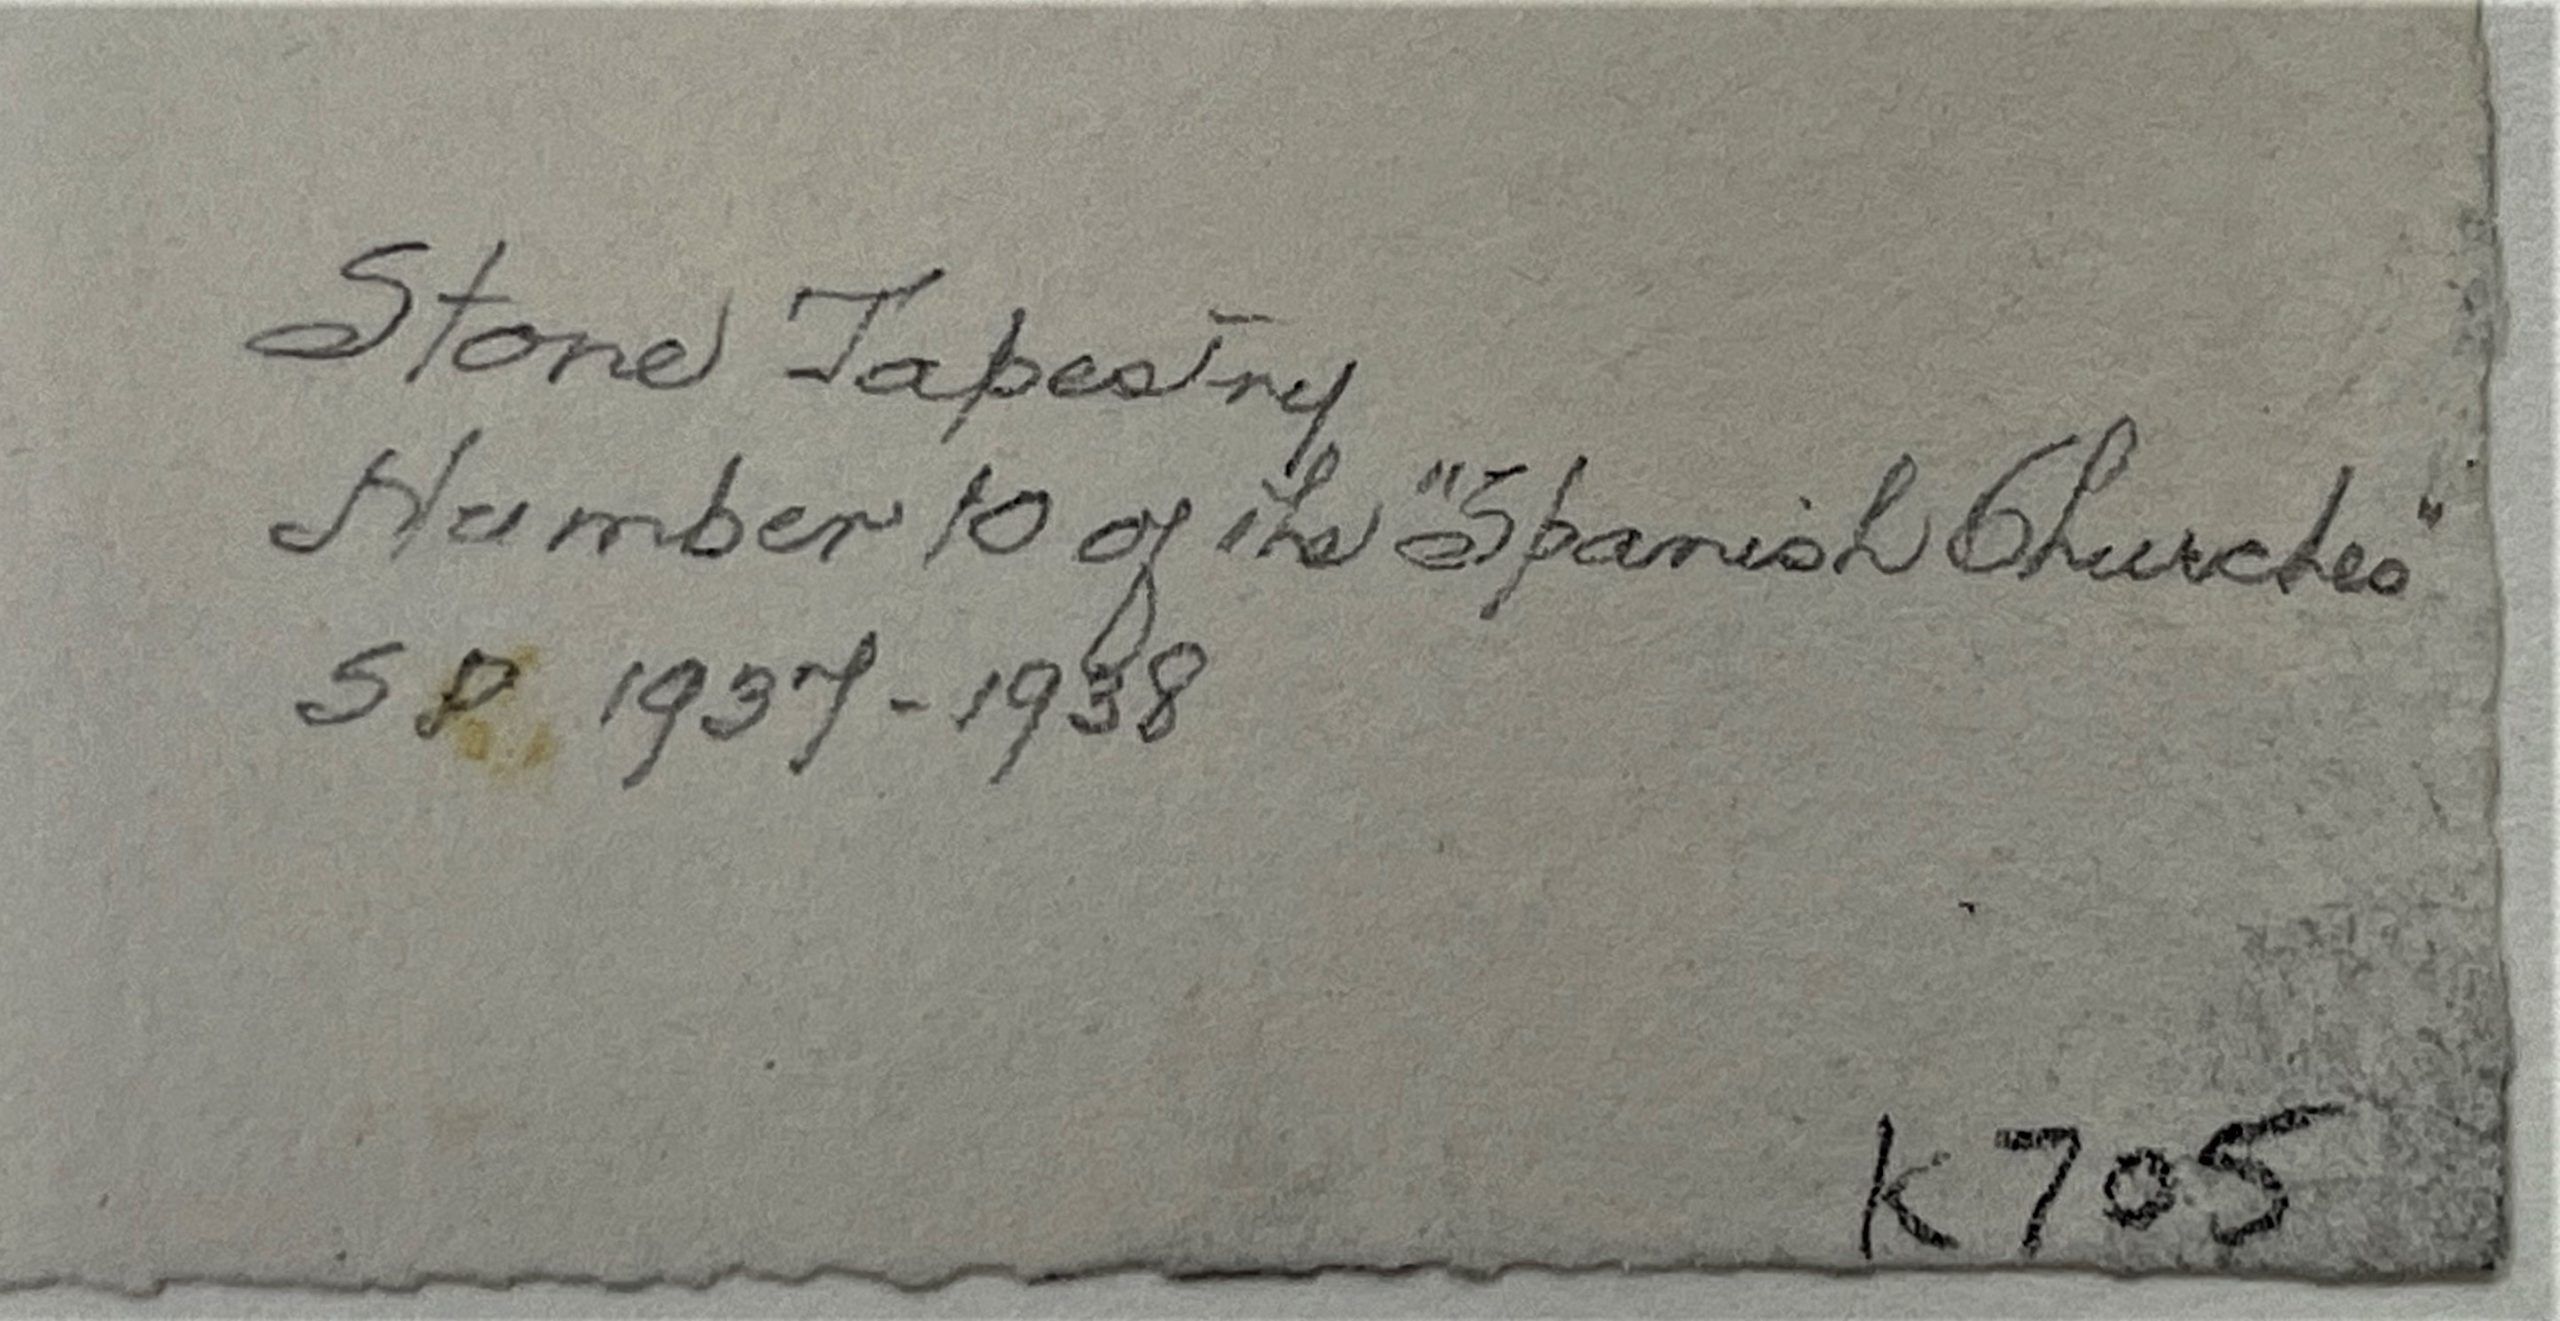 Stone Tapestry
Number 10 of the "Spanish Churches"
SP 1937-1938
K705